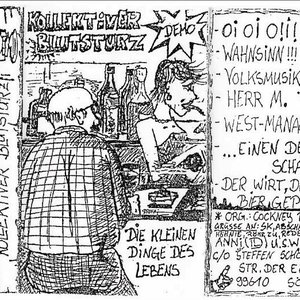 KOLLEKTIVER
BLUTSTURZ
DEMO
DIE KLEINEN
DINGE DES
LEBENS
KOLLEKTIVER BLUTSTURZ
- oi oi o!!!
- WAHNSINN!!!
- VOLKSMUSIK
HERR M.
- WEST-MANA
- ...EINEN DE
SCHA
DER WIRT, D
BIER GEP
* ORG.: COCKNEY
GRÜSSE AN: SK, ABSCH
ANNI (TD) U.S.W
C/O STEFFEN SCHÖ
STR. DER E.
99610 SÖ